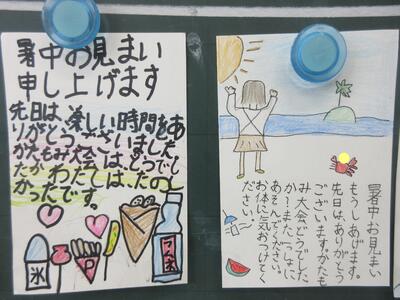 暑中お見まい
申し上げます
先日は、楽しい時間をあ
りがとうございました
かたもみ大会はどうでし
たか わたしは、たのし
かったです。
氷
P
ラムネ
暑中お見まい
もうしあげます。
先日は、ありがとう
ございます。かたも
み大会、どうでした
か?また、いっしょに
あそんでください。
お体に気おつけてく
ださい。